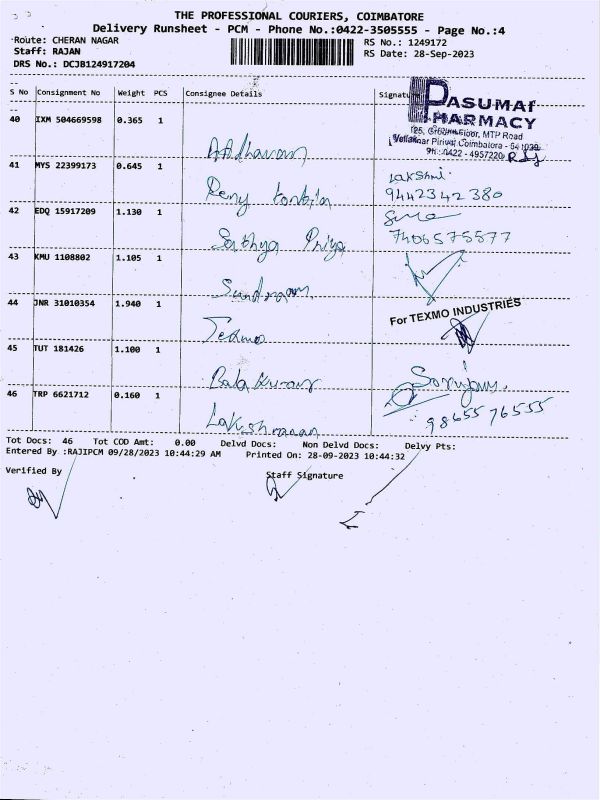 THE PROFESSIONAL COURIERS, COIMBATORE
Delivery Runsheet - PCM - Phone No.:0422-3505555 - Page No.:4
Route: CHERAN NAGAR
RS No.: 1249172
Staff: RAJAN
RS Date: 28-Sep-2023
DRS No.: DCJB124917204
S No Consignment No Weight PCS Consignee Details Signatu
PASUMAI
PHARMACY
125, Ground Floor, MTP Road
Vellakinar Pirivu, Coimbatore - 641029
Ph: 0422 - 4957220
40 IXM 504669598 0.365 1
41 MYS 22399173 0.645 1
Lakshmi
9442342380
Reny
42 EDQ 15917209 1.130 1
7406575577
Sathya Priya
43 KMU 1108802 1.105 1
Sundaram
44 JNR 31010354 1.940 1
For TEXMO INDUSTRIES
Texmo
45 TUT 181426 1.100 1
Bala Kumar
46 TRP 6621712 0.160 1
9865576555
Lakshmanan
Tot Docs: 46 Tot COD Amt: 0.00 Delvd Docs: Non Delvd Docs: Delvy Pts:
Entered By :RAJIPCM 09/28/2023 10:44:29 AM Printed On: 28-09-2023 10:44:32
Verified By
Staff Signature